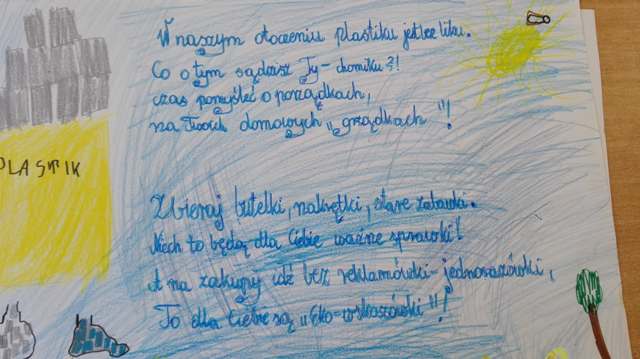 W naszym otoczeniu plastiku jest bez liku.
Co o tym sądzisz Ty - chomiku?!
czas pomyśleć o porządkach,
na Twoich domowych „grządkach"!
PLASTIK
Zbieraj butelki, nakrętki, stare zabawki.
Niech to będą dla Ciebie ważne sprawki!
A na zakupy idź bez reklamówki - jednorazówki,
To dla Ciebie są „Eko-wskazówki"!